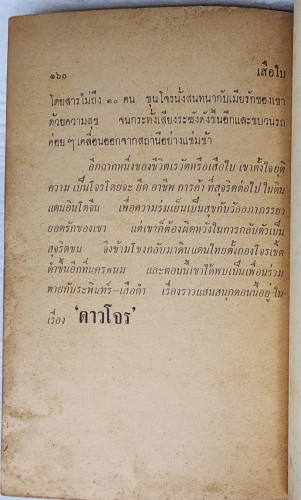 ๑๖๐ เสือใบ
โดยสารไม่ถึง ๓๐ คน ขุนโจรนั่งสนทนากับเมียรักของเขา
ด้วยความสุข จนกระทั่งเสียงระฆังดังขึ้นอีกและขบวนรถ
ค่อย ๆ เคลื่อนออกจากสถานีอย่างแช่มช้า
อีกฉากหนึ่งของชีวิตเรวัติหรือเสือใบ เขาตั้งใจยุติ
ความเป็นโจรโดยจะ ยึด อาชีพ การค้า ที่สุจริตต่อไป ในดิน
แดนอินโดจีน เพื่อความร่มเย็นเป็นสุขกับวัลอภาภรรยา
ยอดรักของเขา แต่เขาก็ต้องผิดหวังในการกลับตัวเป็น
สุจริตชน จึงข้ามโขงกลับมาดินแดนไทยตั้งกองโจรเชิ้ต
ดำขึ้นอีกที่นครพนม และตอนนี้เขาได้พบเป็นเพื่อนร่วม
ตายกับระพินทร์—เสือดำ เรื่องราวแสนสนุกตอนนี้อยู่ใน
เรื่อง 'ดาวโจร'